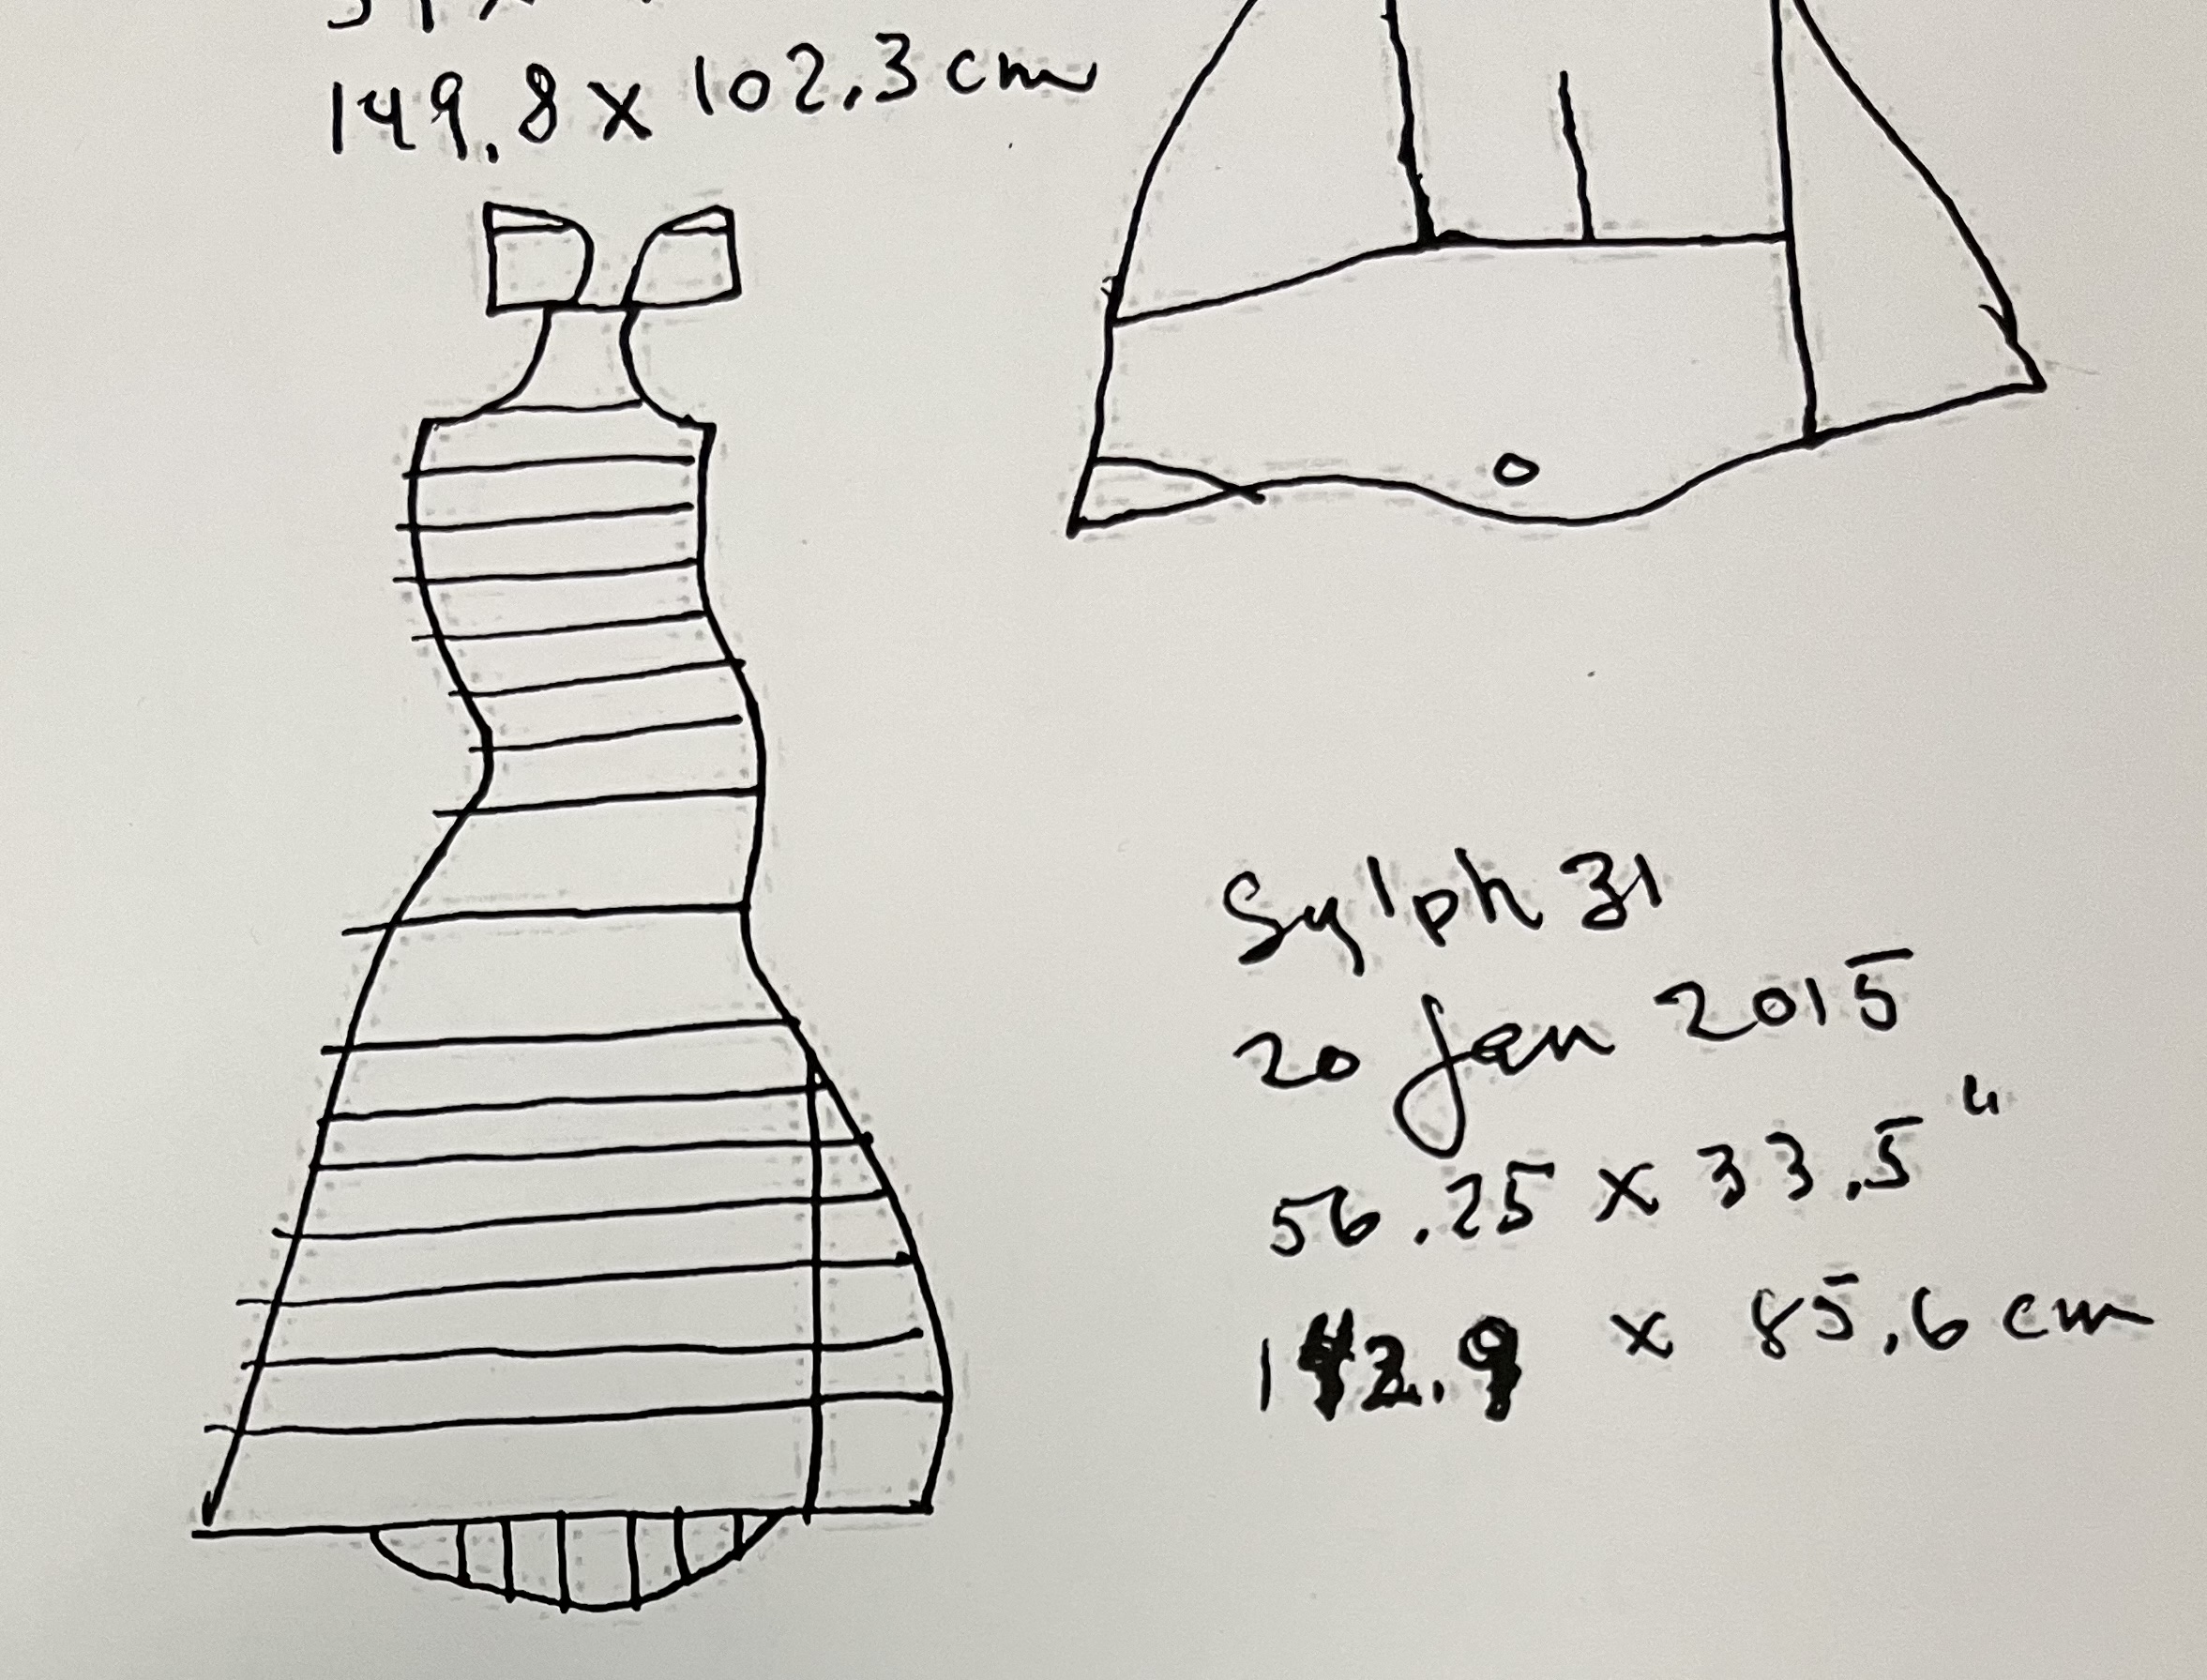 149.8 x 102.3 cm
Sylph 31
20 Jan 2015
56.25 x 33.5"
142.9 x 85.6 cm